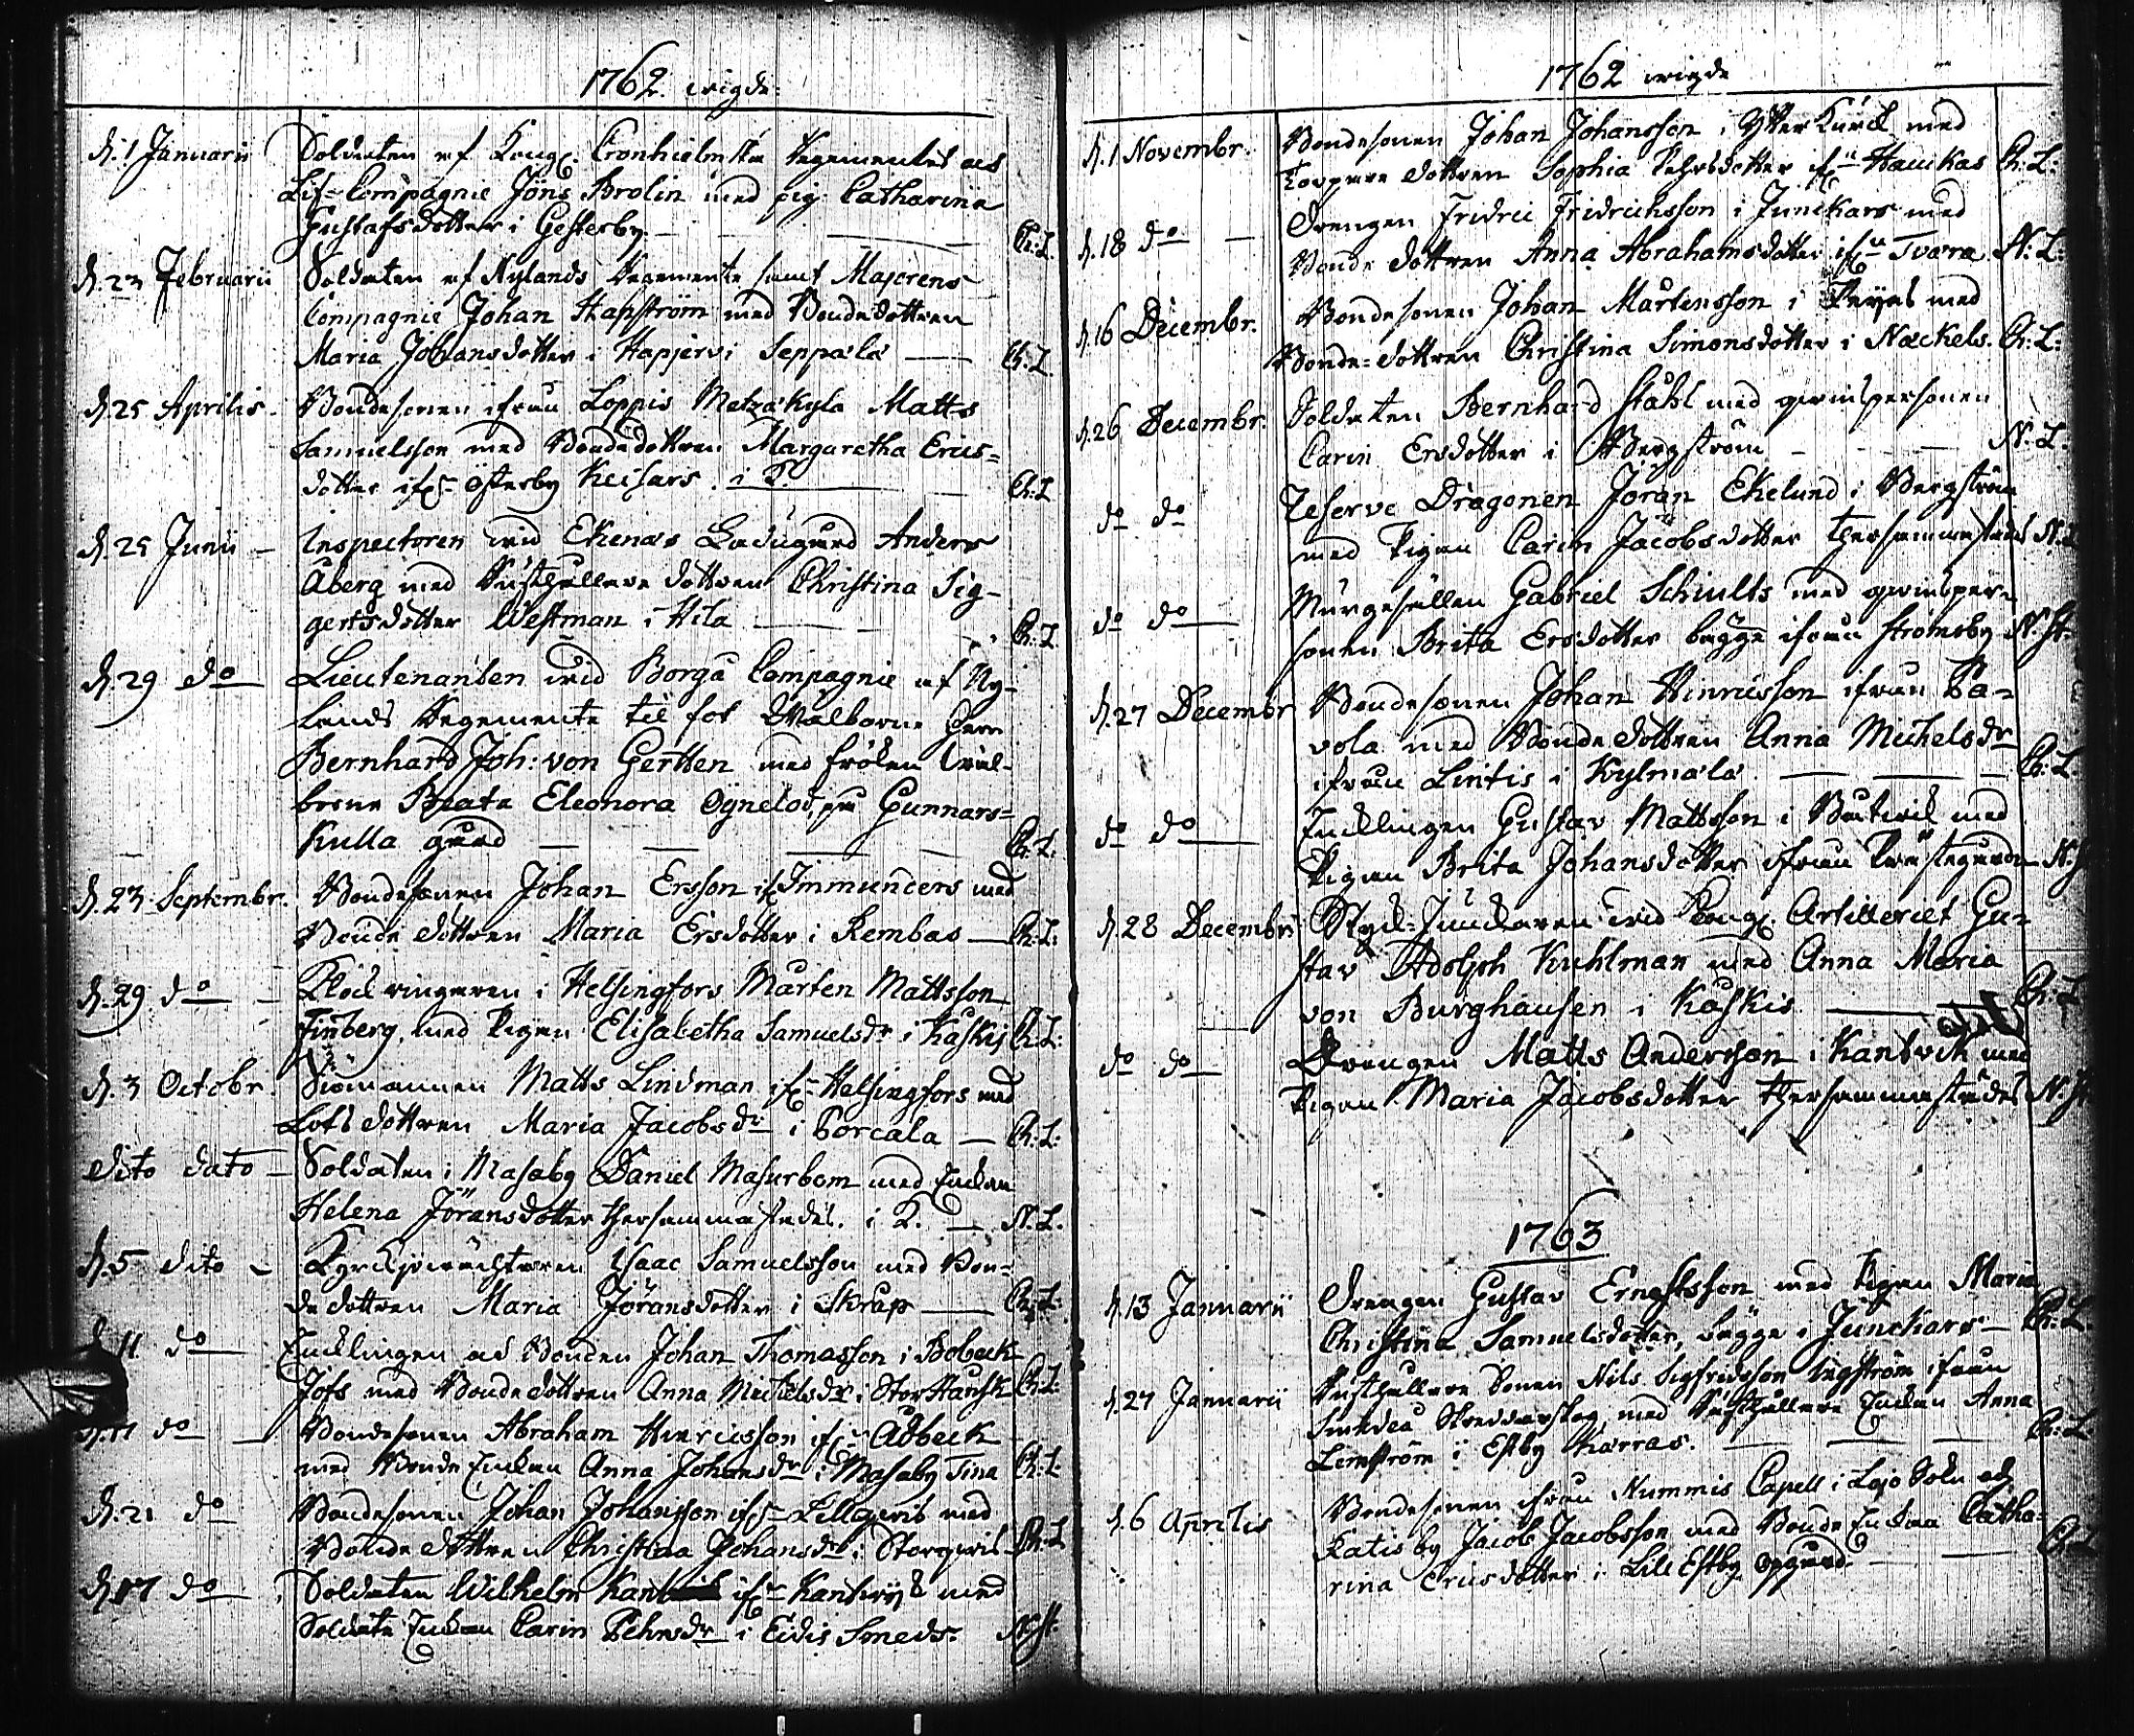 1762. wigde.
d. 1 Januarii Soldaten af Kongl. Cronhielmska Regementet och
Lif-Compagnie Jöns Brolin med pig. Catharina
Gustafsdotter i Gesterby. Ch: L.
d. 23 Februarii Soldaten af Nylands Regemente samt Majorens
Compagnie Johan Hapström med Bondedottren
Maria Johansdotter i Hapjervi Seppälä Ch. L.
d. 25 Aprilis. Bondesonen ifrån Loppis Metzäkylä Matts
Samuelsson med Bondedottren Margaretha Erics=
dotter ifrn Österby Keisars. i K. Ch: L
d. 25 Junii Inspectoren wid Ekenäs Ladugård Anders
Åberg med Rusthållare dottren Christina Sig-
gertsdotter Westman i Hila Ch: L
d. 29 do Lieutenanten wid Borgå Compagnie af Ny-
lands Regemente til fot Wälborne Herr
Bernhard Joh: von Gertten med fröken Wäl-
borne Beata Eleonora Ögnelod, på Gunnars=
kulla gård Ch: L:
d. 23 Septembr. Bondesonen Johan Ersson if. Immunders med
Bonde dottren Maria Ersdotter i Rembas Ch: L:
d. 29 do Klockringaren i Helsingfors Mårten Mattsson
Finberg, med Pigan Elisabetha Samuelsdr i Kaskis Ch: L:
d. 3 Octobr. Siömannen Matts Lindman ifrn Helsingfors med
Lots dottren Maria Jacobsdr i Porcala Ch: L:
dito dato Soldaten i Masaby Daniel Masurbom med Enckan
Helena Jöransdotter thersammastedes. i K. N. L.
d. 5 dito Kyrckjowächtaren Isaac Samuelsson med Bon=
de dottren Maria Jöransdotter i Skrap Ch: L:
d. 11. do Encklingen och Bonden Johan Thomasson i Bobeck
Jofs med Bondedottren Anna Michelsdr i Stor Haush Ch: L:
d. 17 do Bondesonen Abraham Hinricsson ifrn Åbeck
med Bonde Enckan Anna Johansdr i Masaby Tina Ch: L
d. 21 do Bondesonen Johan Johansson ifrn Lillqwis med
Bonde dottren Christina Johansdr i Storqwis Ch: L
d. 17 do Soldaten Wilhelm ifrn Kantwijk med
Soldate Enckan Carin Pehrsdr i Eidis Smeds. N. St.
1762 wigde
d. 1 Novembr. Bondesonen Johan Johansson i Ytter Kurck med
Torpare dottren Sophia Pehrsdotter ifrn Haukas Ch: L:
d. 18 do Drengen Fridric Fridrichsson i Junckars med
Bonde dottren Anna Abrahamsdotter ifrn Tvara N. L:
d. 16 Decembr. Bondesonen Johan Mårtensson i med
Bonde=dottren Christina Simonsdotter i Näckels. Ch: L:
d. 26 Decembr. Soldaten Bernhard Ståhl med qwinspersonen
Carin Ersdotter i Bergström N. L.
do do Reserve Dragonen Jöran Ekelund i Bergström
med Pigan Carin Jacobsdotter thersammastedes N. L
do do Murgesällen Gabriel Schults med qwinsper-
sonen Brita Ersdotter bägge ifrån Strömsby N. St.
d. 27 Decembr Bondesonen Johan Hinricsson ifrån Pa=
vola med Bondedottren Anna Michelsdr
ifrån Lintis i Kylmälä Ch: L.
do do Encklingen Gustav Mattsson i Båtwik med
Pigan Brita Johansdotter ifrån Prästegården N. St
d. 28 Decembr. Styck-Junckaren wid Kongl. Artilleriet Gu=
stav Adolph Kuhlman med Anna Maria
von Burghausen i Kaskis Ch: L
do do Drengen Matts Andersson i Kantvik med
Pigan Maria Jacobsdotter thersammastädes N. St
1763
d. 13 Januarii Drengen Gustav Ernstsson med Pigan Maria
Christina Samuelsdotter, bägge i Junckars Ch: L.
d. 27 Januarii Rusthållare Sonen Nils Sigfridsson Ingström ifrån
Skreddarskog, med Rusthållare Enckan Anna
Lemström i Estby Karras. Ch: L.
d. 6 Aprilis Bondesonen ifrån Nummis Capell i Lojo Sokn och
Katis by Jacob Jacobsson med Bonde Enckan Catha=
rina Ericsdotter i Lill Estby Opgård. Ch: L